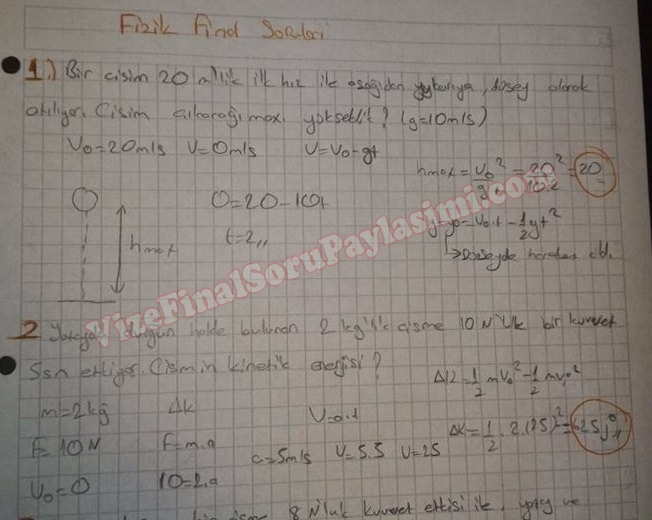 Fizik Final Soruları
1.) Bir cisim 20 m/lik ilk hız ile aşağıdan yukarıya, düşey olarak
atılıyor. Cisim çıkacağı max. yükseklik? (g=10m/s)
V₀=20m/s V=0m/s V=V₀-gt
hmax = V₀²/g.2 = 20²/10.2 = 20
0=20-10t
y-y₀=V₀.t-1/2gt²
hmax
t=2,,
→Düşeyde hareket old.
VizeFinalSoruPaylasimi.com
2 durgun halde bulunan 2 kg'lık cisme 10 N'luk bir kuvvet
5sn etkiyor. Cismin kinetik enerjisi?
m=2kg ΔK V=a.t
F=10N F=m.a a=5m/s V=5.5 V=25
V₀=0 10=2.a
8 N'luk kuvvet etkisi ile, yatay ve